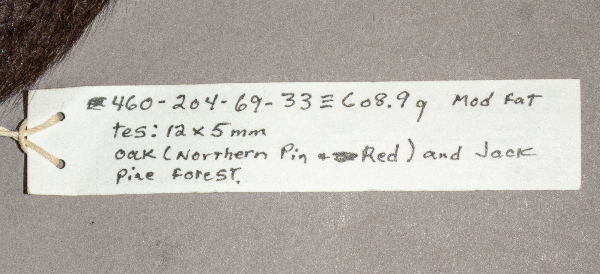 460-204-69-33≡608.9g Mod fat
tes: 12 x 5mm
oak (Northern Pin + Red) and Jack
Pine forest.